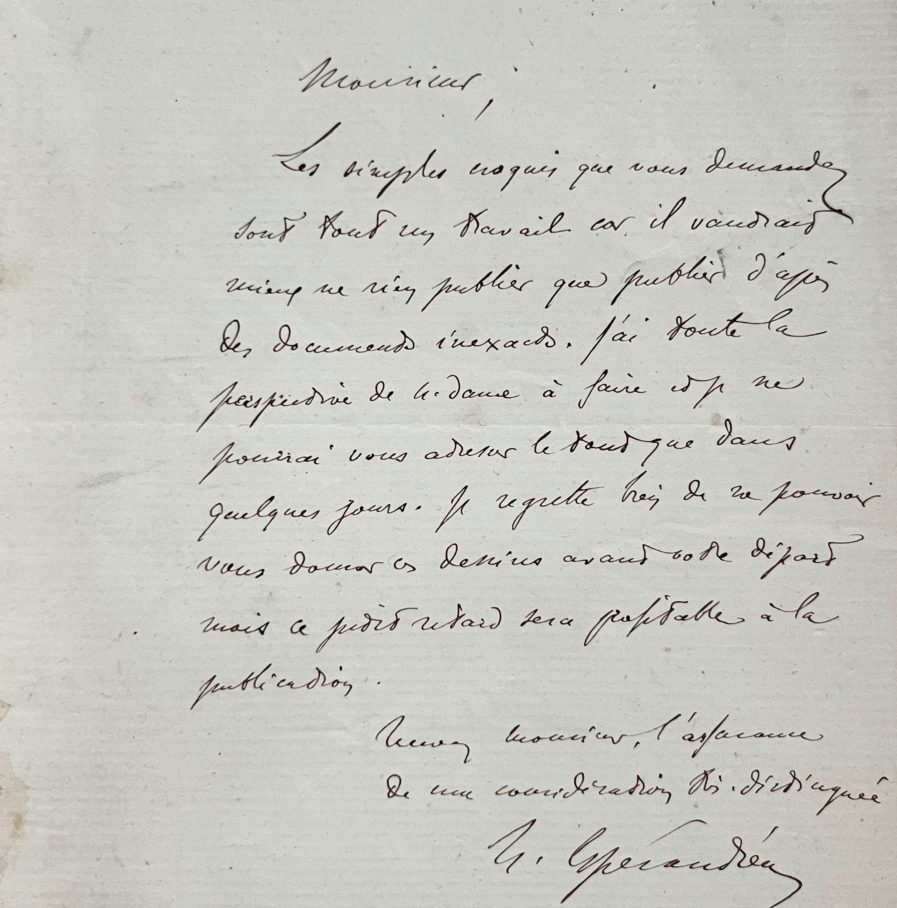 Monsieur,
Les simples croquis que vous demandez
sont tout un travail car il vaudrait
mieux ne rien publier que publier d'après
des documents inexacts. J'ai toute la
perspective de N. dame à faire et je ne
pourrai vous adresser le tout que dans
quelques jours. Je regrette bien de ne pouvoir
vous donner ces dessins avant votre départ
mais ce petit retard sera profitable à la
publication.
Recevez monsieur, l'assurance
de ma considération très-distinguée
H. Espérandieu